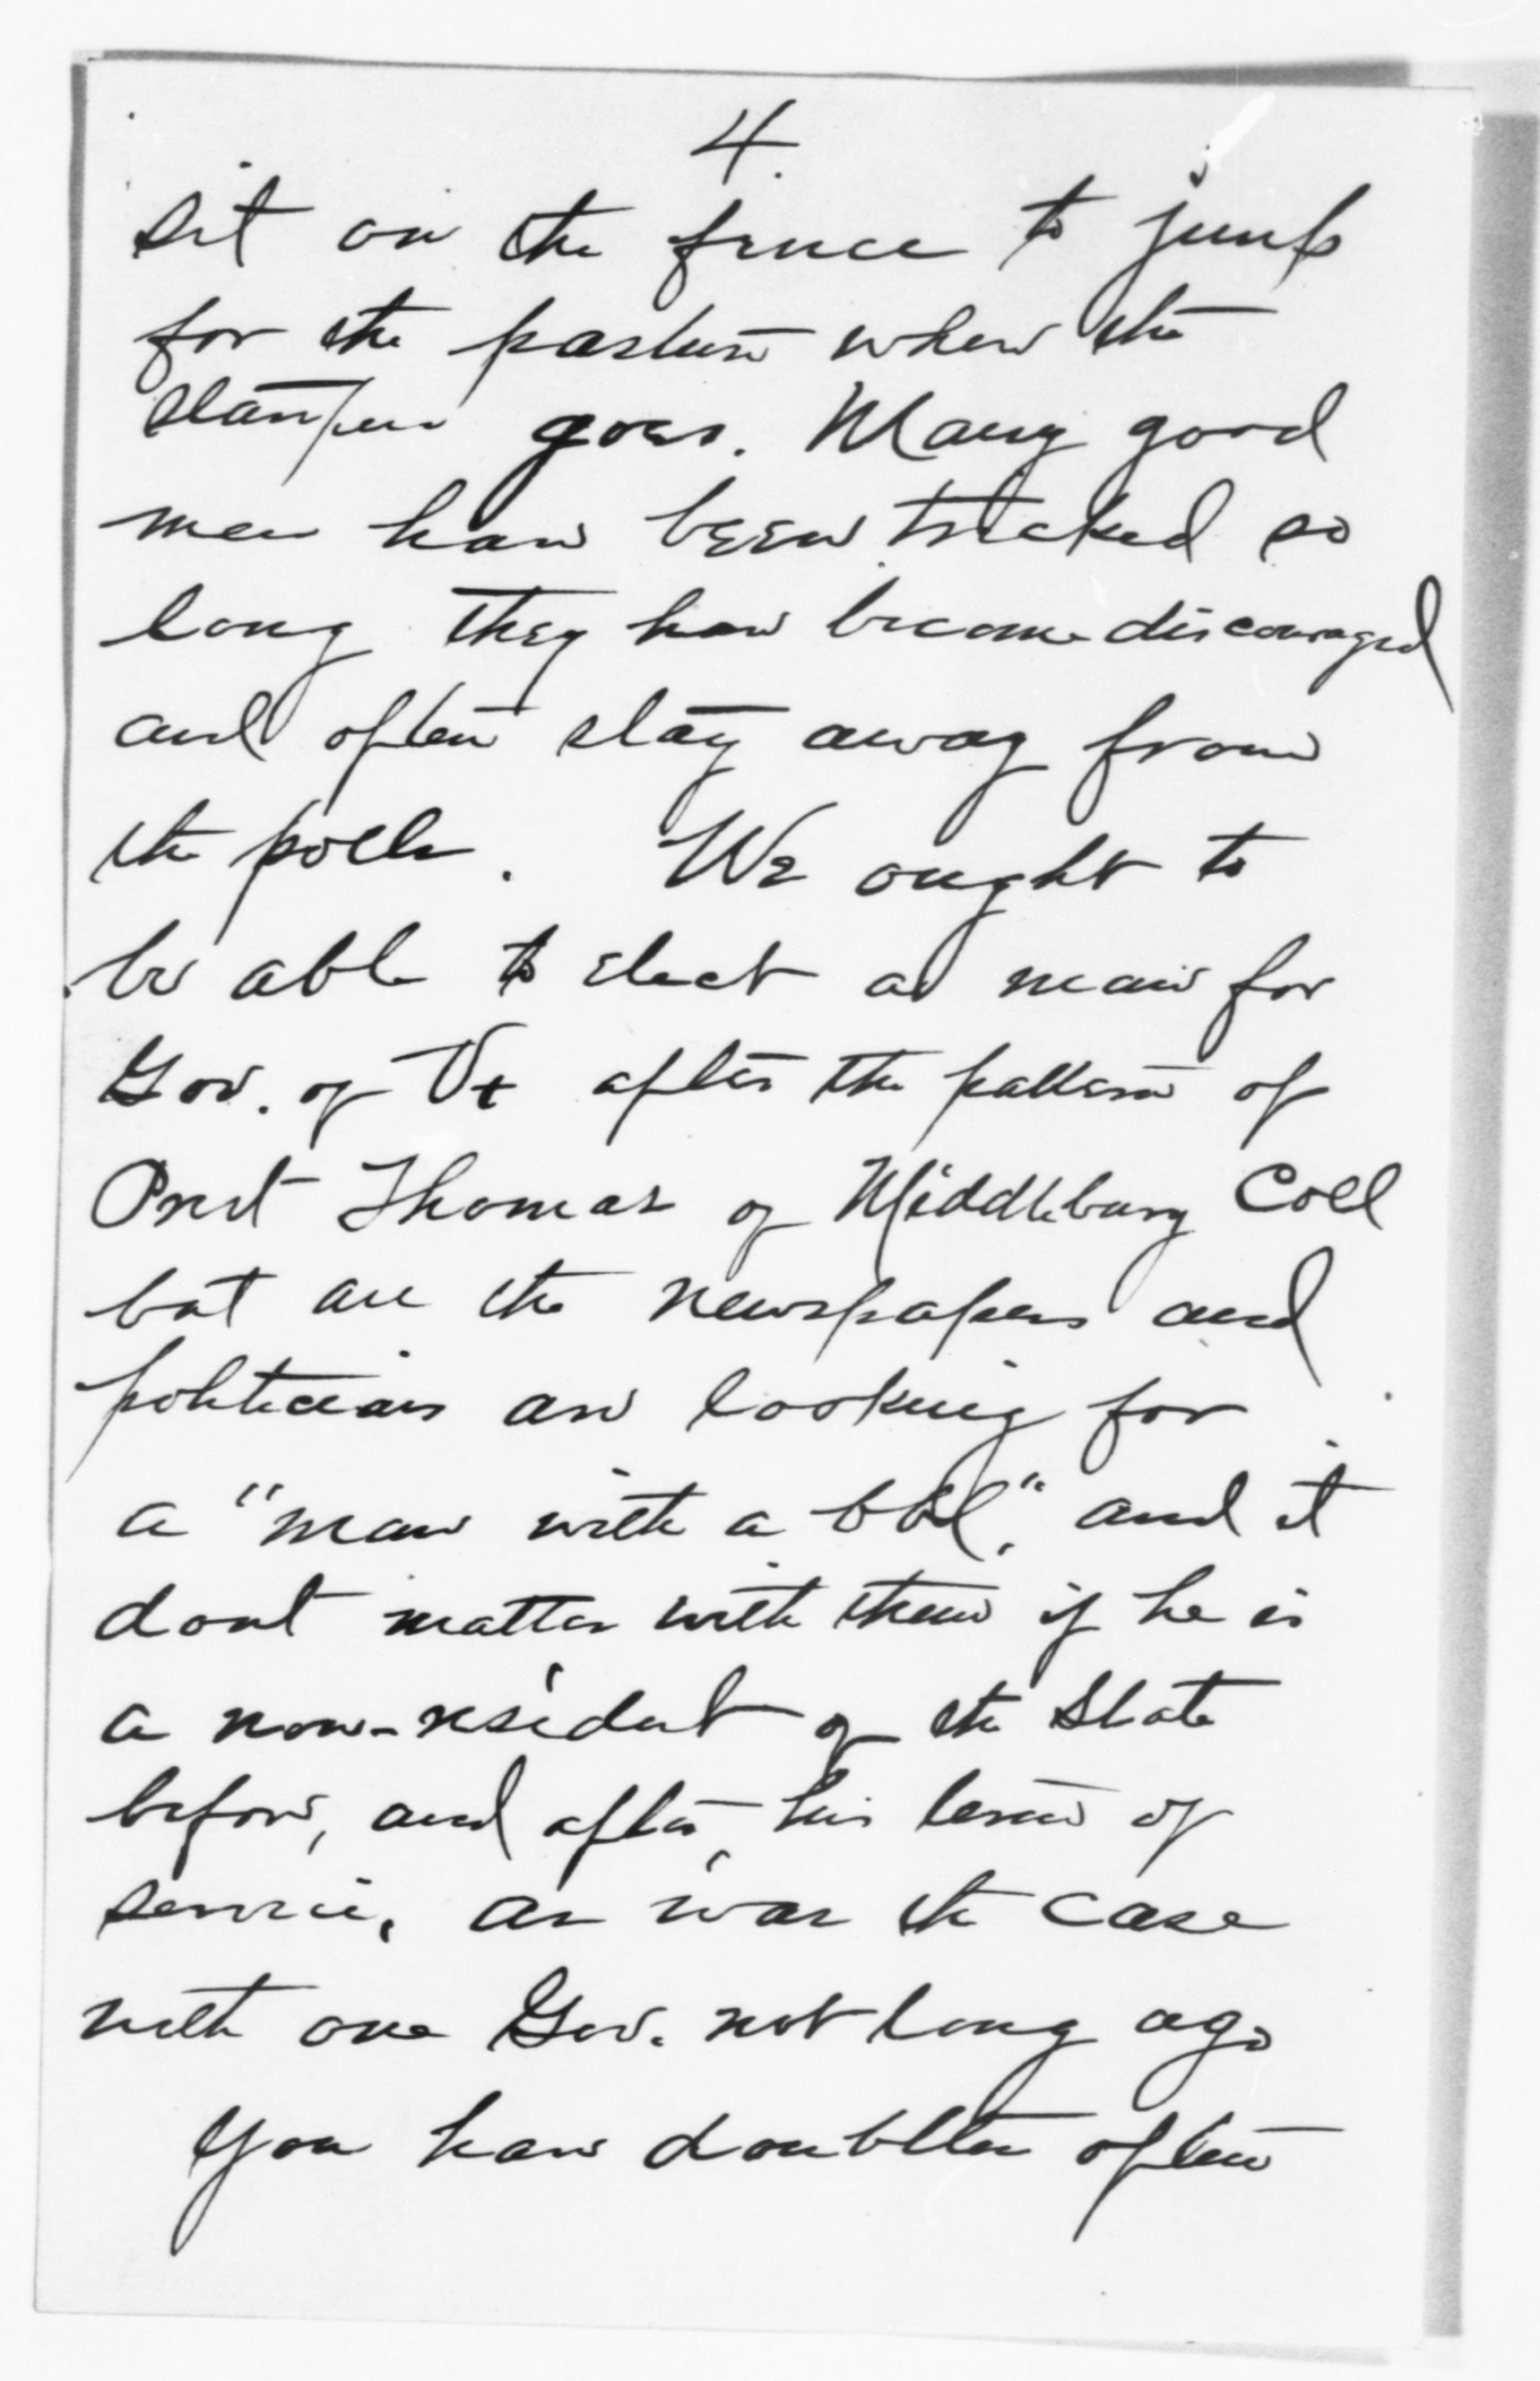 4.
sit on the fence to jump
for the pasture when the
goes. Many good
men have been tricked so
long they have become discouraged
and often stay away from
the polls. We ought to
be able to elect a man for
Gov. of Vt after the pattern of
Prest Thomas of Middlebury Coll
but all the newspapers and
politicians are looking for
a "man with a bbl." and it
dont matter with them if he is
a non-resident of the State
before, and after, his term of
service, as was the case
with one Gov. not long ago
You have doubtless often